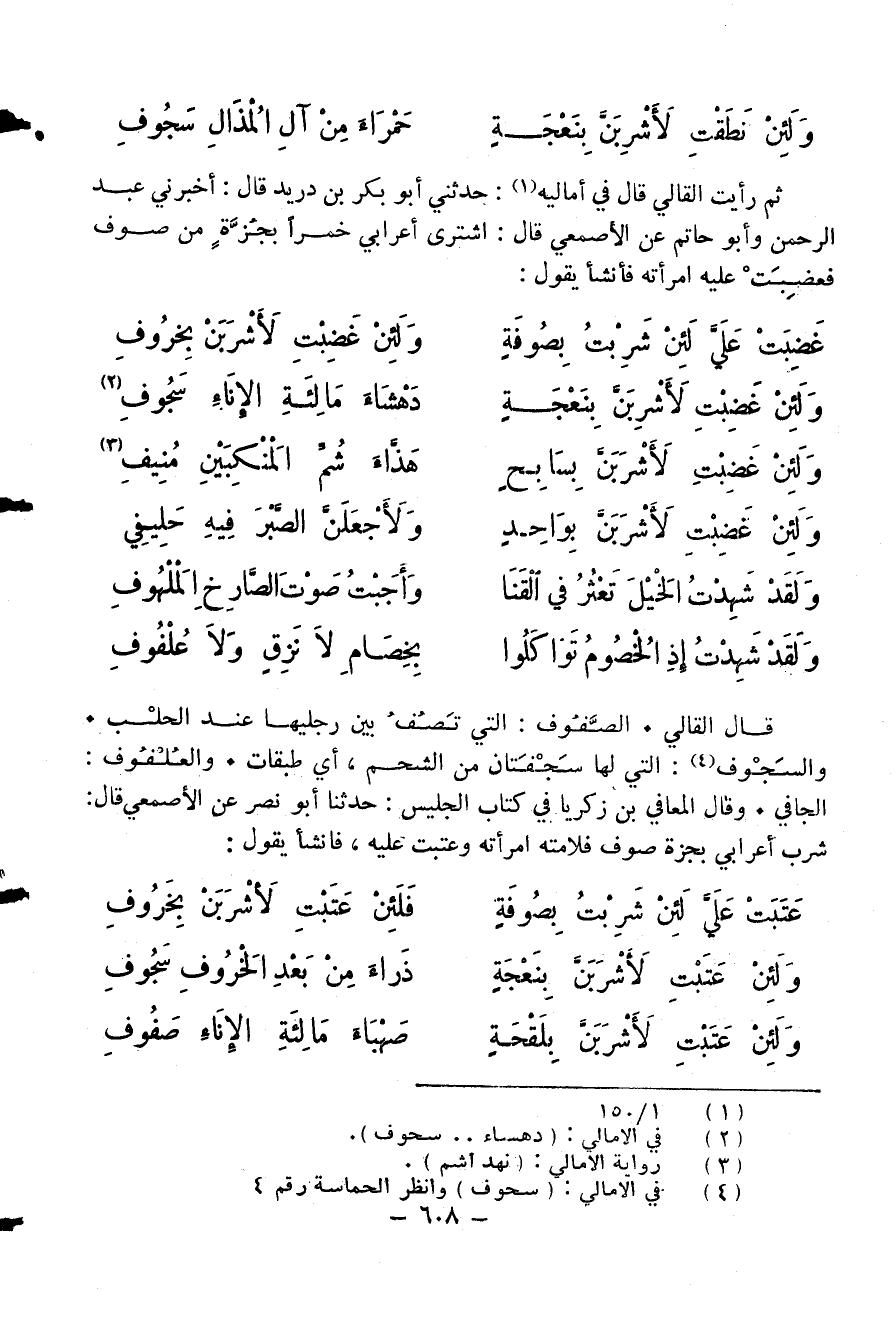 وَلَئِنْ نَطَقْتِ لَأَشْرِبَنَّ بِنَعْجَةٍ حَمْرَاءَ مِنْ آلِ الْمُذَالِ سَجُوفِ
ثم رأيت القالي قال في أماليه(١) : حدثني أبو بكر بن دريد قال : أخبرني عبد
الرحمن وأبو حاتم عن الأصمعي قال : اشترى أعرابي خمراً بجُزَّةٍ من صوف
فعضِبَتْ عليه امرأته فأنشأ يقول :
غَضِبَتْ عَلَيَّ لَئِنْ شَرِبْتُ بِصُوفَةٍ وَلَئِنْ غَضِبْتِ لَأَشْرَبَنْ بِخَرُوفِ
وَلَئِنْ غَضِبْتِ لَأَشْرِبَنَّ بِنَعْجَةٍ دَهْشَاءَ مَالِئَةِ الإِنَاءِ سَجُوفِ(٢)
وَلَئِنْ غَضِبْتِ لَأَشْرَبَنَّ بِسَابِحٍ هَذَّاءَ شُمِّ الْمَنْكِبَيْنِ مُنِيفِ(٣)
وَلَئِنْ غَضِبْتِ لَأَشْرَبَنَّ بِوَاحِدٍ وَلَأَجْعَلَنَّ الصَّبْرَ فِيهِ حَلِيفِي
وَلَقَدْ شَهِدْتُ الْخَيْلَ تَعْثُرُ في الْقَنَا وَأَجَبْتُ صَوْتَ الصَّارِخِ الْمَلْهُوفِ
وَلَقَدْ شَهِدْتُ إِذِ الْخُصُومُ تَوَاكَلُوا بِخِصَامِ لاَ نَزِقٍ وَلاَ عُلْفُوفِ
قال القالي • الصَّفُوف : التي تَصُفُّ بين رجليها عند الحلْب •
والسَجْوف(٤) : التي لها سَجْفَتان من الشحم ، أي طبقات • والعُلْفُوف :
الجافي • وقال المعافي بن زكريا في كتاب الجليس : حدثنا أبو نصر عن الأصمعي قال:
شرب أعرابي بجزة صوف فلامته امرأته وعتبت عليه ، فانشأ يقول :
عَتَبَتْ عَلَيَّ لَئِنْ شَرِبْتُ بِصُوفَةٍ فَلَئِنْ عَتَبْتِ لَأَشْرَبَنْ بِخَرُوفِ
وَلَئِنْ عَتَبْتِ لَأَشْرَبَنَّ بِنَعْجَةٍ ذَراءَ مِنْ بَعْدِ الْخَرُوفِ سَجُوفِ
وَلَئِنْ عَتَبْتِ لَأَشْرَبَنَّ بِلَقْحَةٍ صَهْبَاءَ مَالِئَةِ الإِنَاءِ صَفُوفِ
(١) ١٥٠/١
(٢) في الامالي : ( دهساء .. سحوف ).
(٣) رواية الامالي : ( نهد أشم ) .
(٤) في الامالي : ( سحوف ) وانظر الحماسة رقم ٤
– ٦٠٨ –